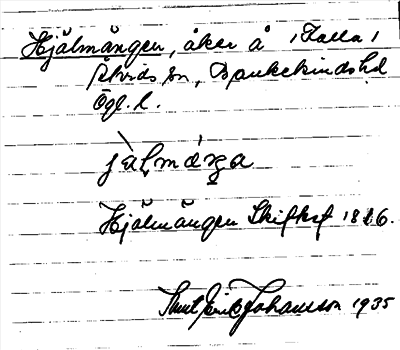 Hjälmängen, åker å /Falla/
Åtvids sn, Bankekinds hd
Ögl. l.
jàļmáŋa
Hjälmängen Skifteskf 1816.
Knut Eric Johansson 1935